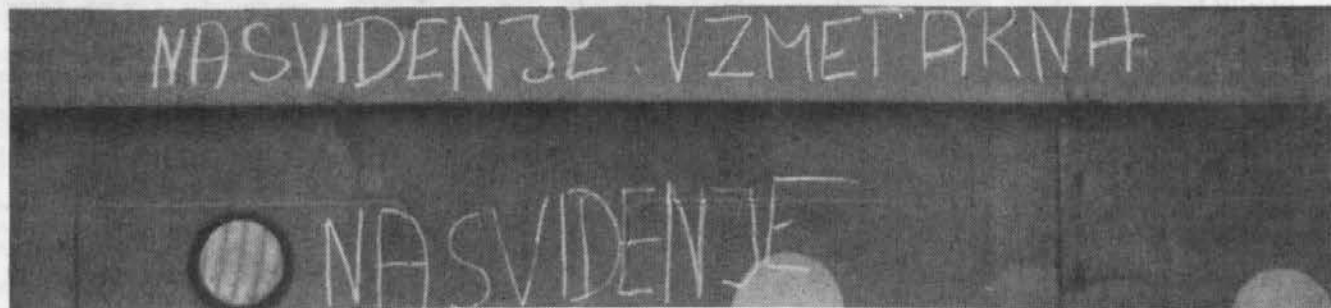 NASVIDENJE VZMETARNA
NASVIDENJE